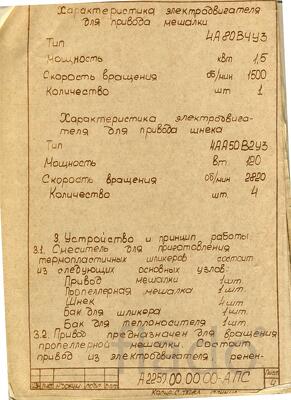 Характеристика электродвигателя
для привода мешалки
Тип 4А80В4У3
Мощность квт 1,5
Скорость вращения об/мин 1500
Количество шт 1
Характеристика электродвига-
теля для привода шнека
Тип 4АА50В2У3
Мощность вт. 120
Скорость вращения об/мин 2820
Количество шт. 4
3. Устройство и принцип работы.
3.1. Смеситель для приготовления
термопластичных шликеров состоит
из следующих основных узлов:
Привод мешалки 1 шт.
Пропеллерная мешалка 1 шт.
Шнек 4 шт.
Бак для шликера 1 шт.
Бак для теплоносителя 1 шт.
3.2. Привод предназначен для вращения
пропеллерной мешалки. Состоит
привод из электродвигателя, ремен-
А2257.00.00.00-А ПС